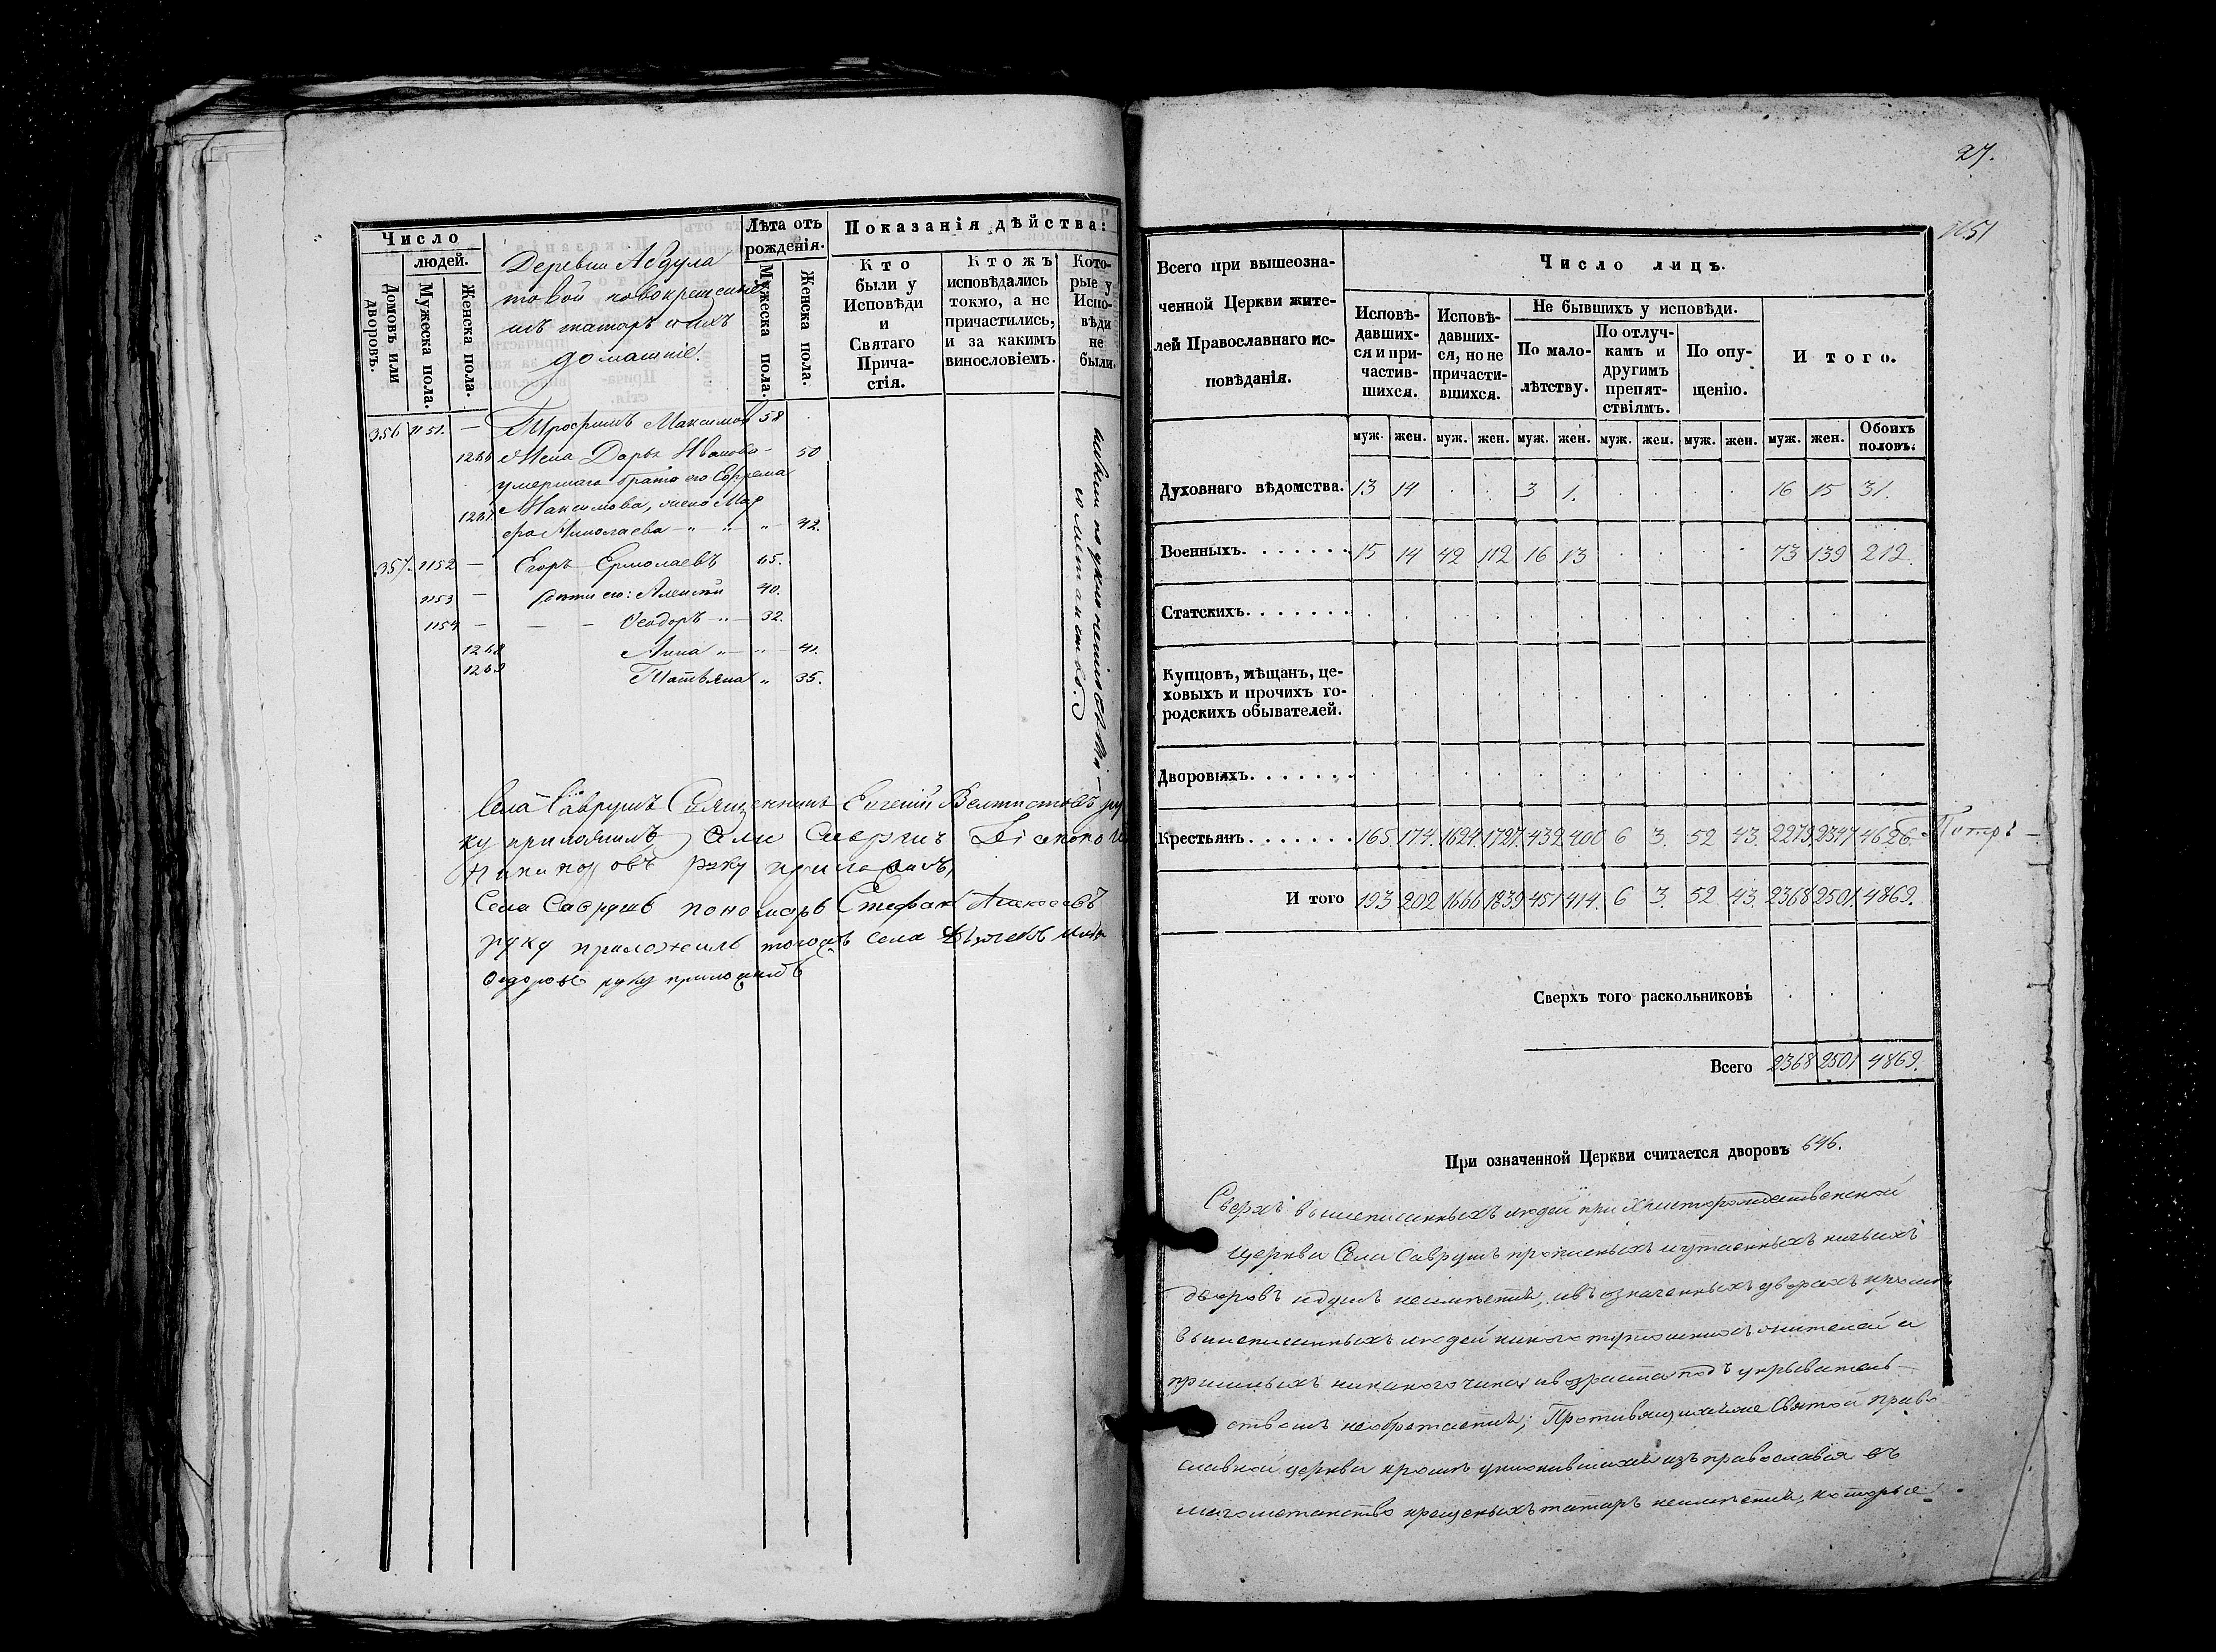 Число
людей.
Домовъ или дворовъ.
Мужеска пола.
Женска пола.
Деревни Абдула
товой новокрещеные
изъ татаръ и ихъ
домашніе.
Лѣта отъ
рожденія.
Мужеска пола.
Женска пола.
Показанія дѣйства:
Кто
были у
Исповѣди
и
Святаго
Прича-
стія.
Кто жъ
исповѣдались
токмо, а не
причастились,
и за какимъ
винословіемъ.
Кото-
рые у
Испо-
вѣди
не
были.
356 1151. — Трофимъ Максимов 58
1266 Жена Дарья Иванова - 50
умершаго брата его Ефрема
1267. Максимова, жена Мар
фа Николаева — " — " — " 42.
357. 1152 — Егоръ Ермолаевъ 65.
1153 — Дети его: Алексѣй 40.
1154 — — — Ѳеодоръ — " — 32.
1268 Анна " — " — 41.
1269 Татьяна " 35.
по уклоненію
Села Саврушъ Священникъ Евгеній ру
ку приложилъ Села Саврушъ
руку приложилъ
Села Саврушъ пономарь Стефан Алексеевъ
руку приложилъ тогожъ села
Ѳедоровъ руку приложилъ
27.
1151
Всего при вышеозна-
ченной Церкви жите-
лей Православнаго ис-
повѣданія.
Число лицъ.
Исповѣ-
давших-
ся и при-
частив-
шихся.
Исповѣ-
давших-
ся, но не
причасти-
вшихся.
Не бывшихъ у исповѣди.
По мало-
лѣтству.
По отлуч-
камъ и
другимъ
препят-
ствіямъ.
По опу-
щенію.
И того.
муж. жен. муж. жен. муж. жен. муж. жен. муж. жен. муж. жен. Обоихъ
половъ.
Духовнаго вѣдомства. 13 14 . . 3 1. . . . . 16 15 31.
Военныхъ. . . . . . . 15 14 42 112 16 13 . . . . 73 139 212.
Статскихъ. . . . . . .
Купцовъ, мѣщанъ, це-
ховыхъ и прочихъ го-
родскихъ обывателей.
Дворовыхъ. . . . . . .
Крестьянъ. . . . . . . 165. 174. 1624. 1727. 432 400 6 3. 52 43. 2279. 2347 4626.
И того 193 202 1666 1839 451 414. 6 3. 52 43. 2368 2501. 4869.
Сверхъ того раскольниковъ . . .
Всего 2368 2501 4869.
При означенной Церкви считается дворовъ 646.
Сверхъ вышеписанныхъ людей при Христорождественской
церкви Села Саврушъ прописныхъ и утаенныхъ ничьихъ
дворовъ и душъ неимѣется, и въ означенныхъ дворахъ кромѣ
вышеписанныхъ людей никого тутошнихъ жителей и
пришлыхъ никакого чина и возраста подъ укрыватель-
ствомъ необретается; Противящихся Святой Право
славной церкви кромѣ уклонившихся изъ православія въ
магометанство крещеныхъ татаръ неимѣется, которые